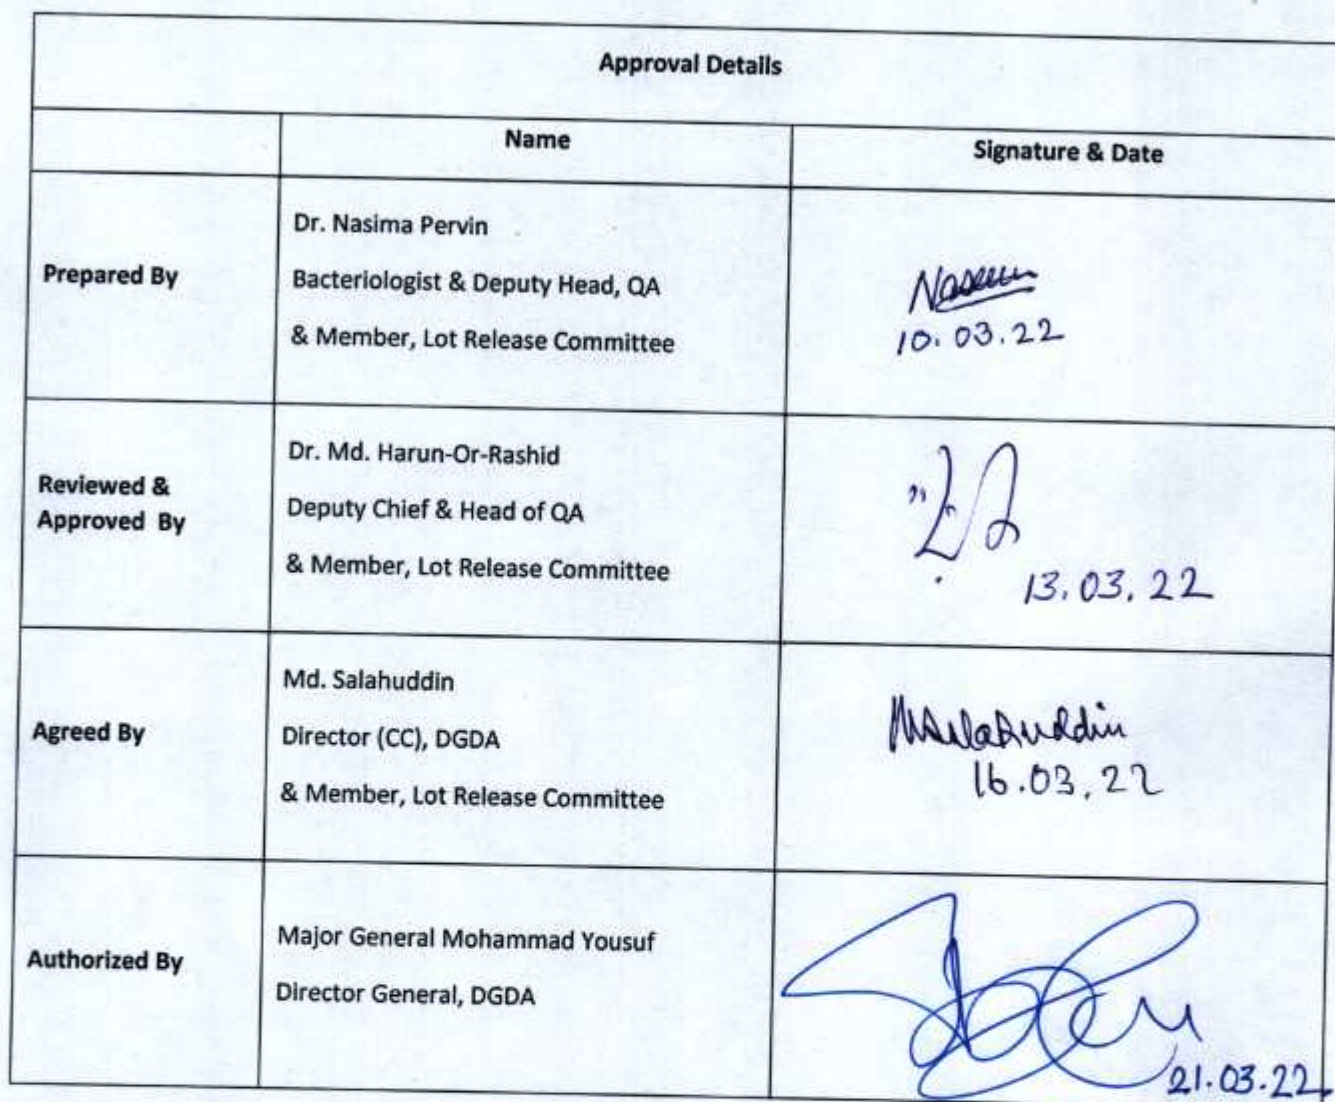 Approval Details
Name
Signature & Date
Prepared By
Dr. Nasima Pervin
Bacteriologist & Deputy Head, QA
& Member, Lot Release Committee
10.03.22
Reviewed &
Approved By
Dr. Md. Harun-Or-Rashid
Deputy Chief & Head of QA
& Member, Lot Release Committee
13.03.22
Agreed By
Md. Salahuddin
Director (CC), DGDA
& Member, Lot Release Committee
16.03.22
Authorized By
Major General Mohammad Yousuf
Director General, DGDA
21.03.22